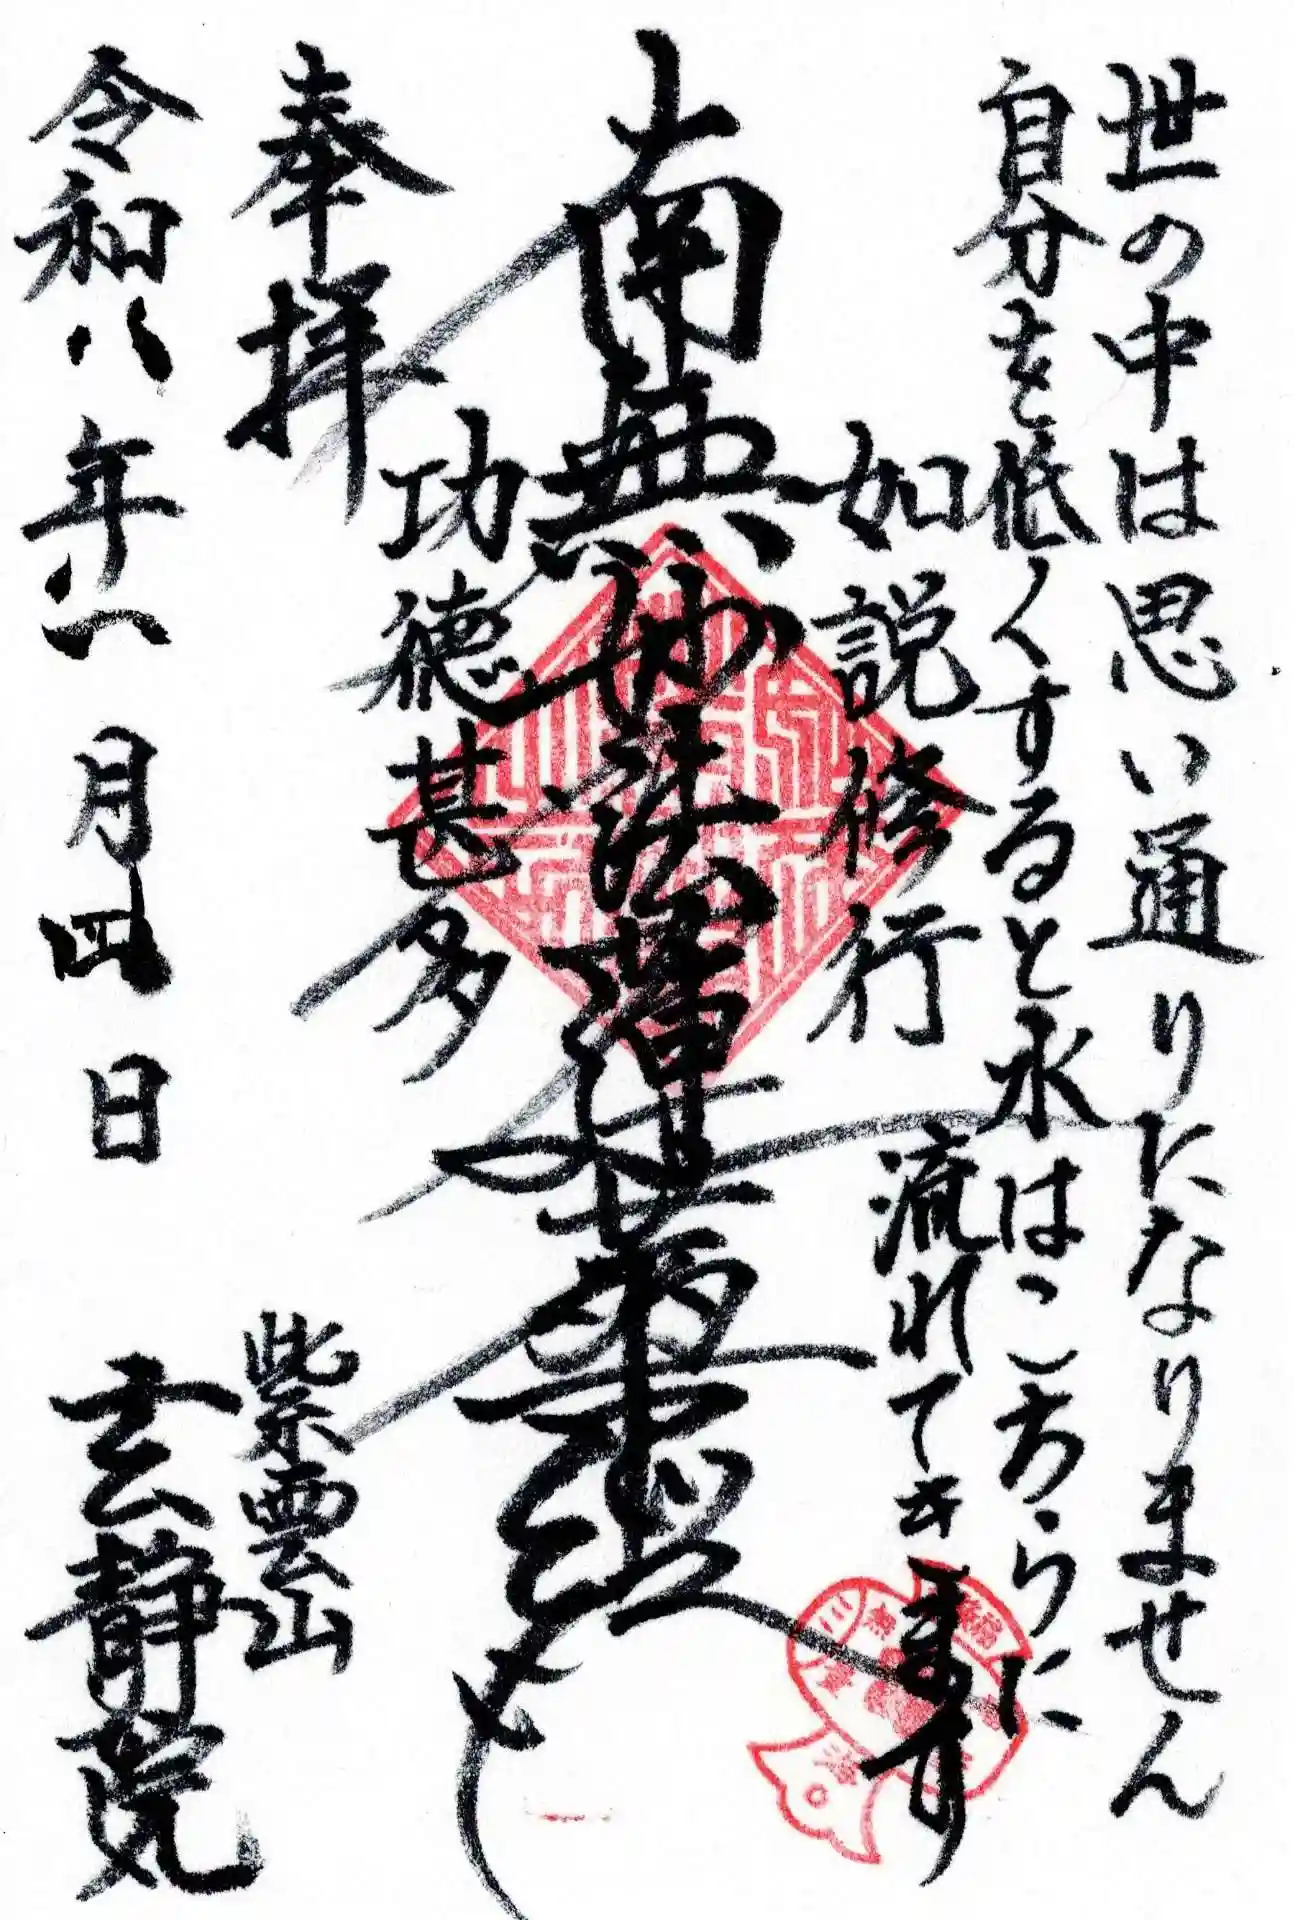 世の中は思い通りになりません
自分を低くすると水はこちらに
流れてきます
如説修行
南無妙法蓮華経
功徳甚多
奉拝
令和八年 月四日
紫雲山
玄静院